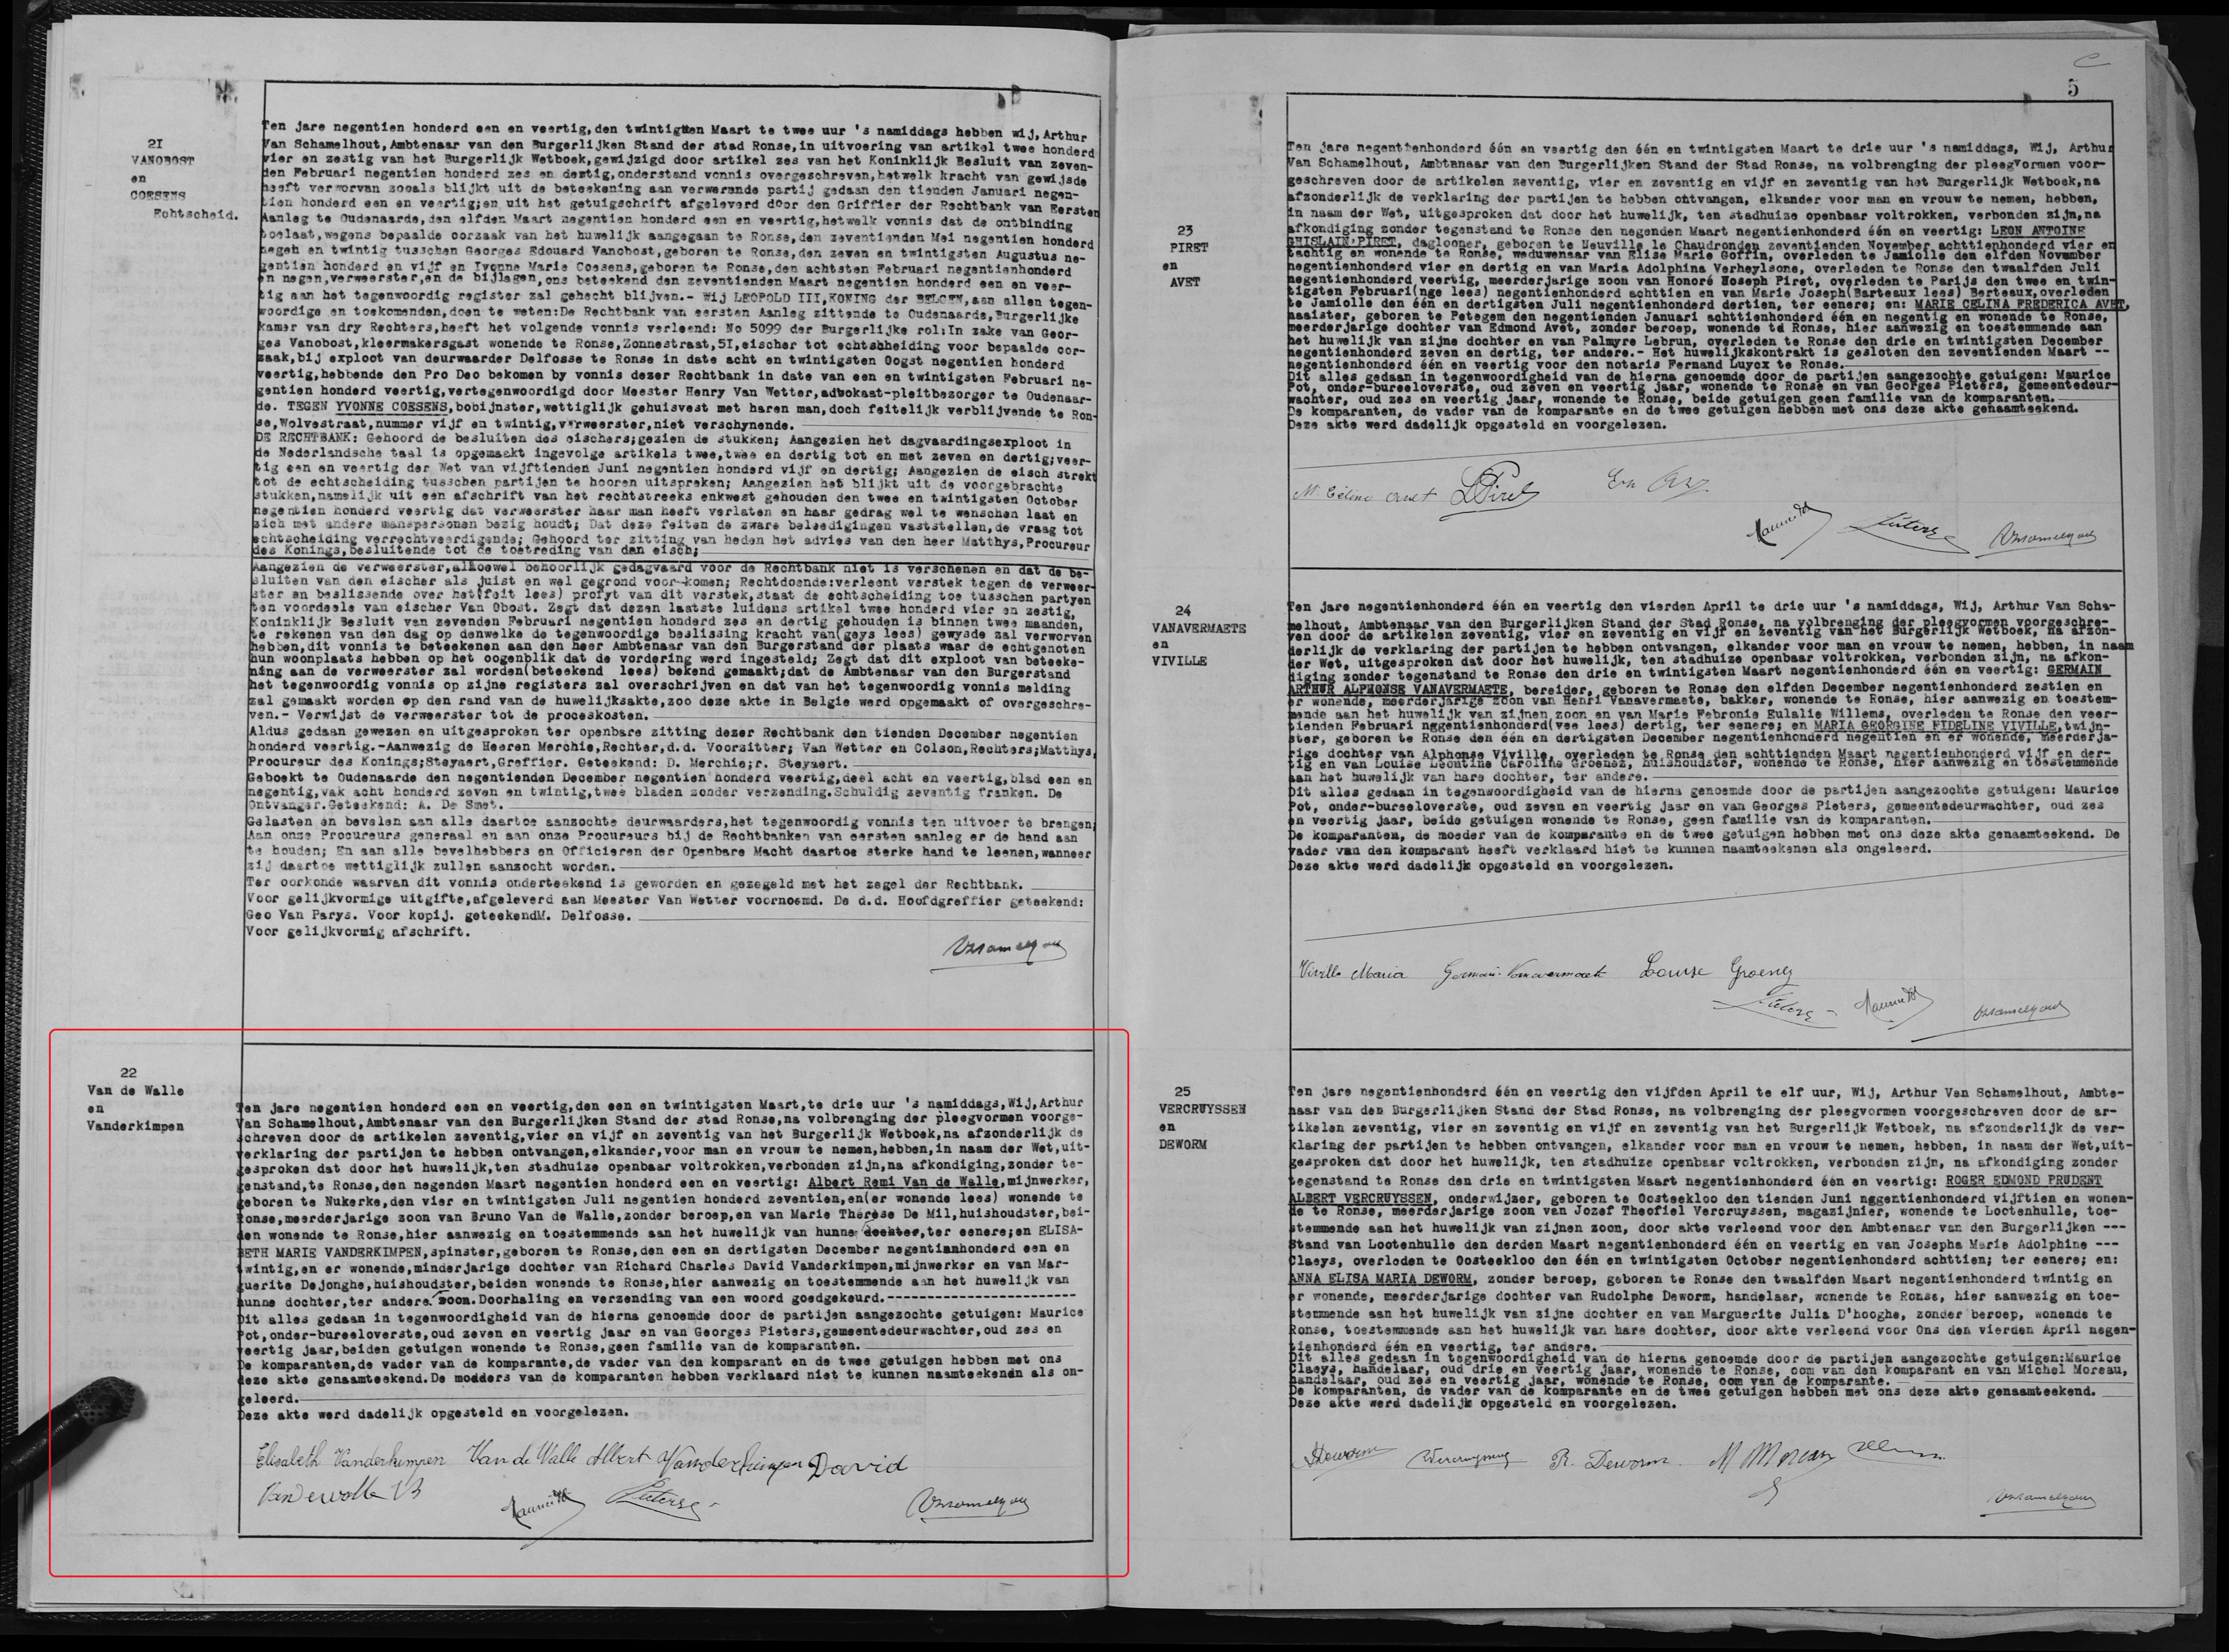 21
VANOBOST
en
COESENS
Echtscheid.
Ten jare negentien honderd een en veertig,den twintigsten Maart te twee uur 's namiddags hebben wij,Arthur
Van Schamelhout,Ambtenaar van den Burgerlijken Stand der stad Ronse,in uitvoering van artikel twee honderd
vier en zestig van het Burgerlijk Wetboek,gewijzigd door artikel zes van het Koninklijk Besluit van zeven-
den Februari negentien honderd zes en dertig,onderstaand vonnis overgeschreven,hetwelk kracht van gewijsde
heeft verworven zooals blijkt uit de beteekening aan verwerende partij gedaan den tienden Januari negen-
tien honderd een en veertig;en uit het getuigschrift afgeleverd door den Griffier der Rechtbank van Eersten
Aanleg te Oudenaarde,den elfden Maart negentien honderd een en veertig,hetwelk vonnis dat de ontbinding
toelaat,wegens bepaalde oorzaak van het huwelijk aangegaan te Ronse,den zeventienden Mei negentien honderd
negen en twintig tusschen Georges Edouard Vanobost,geboren te Ronse,den zeven en twintigsten Augustus ne-
gentien honderd en vijf en Ivonne Marie Coesens,geboren te Ronse,den achtsten Februari negentienhonderd
en negen,verweerster,en de bijlagen,ons beteekend den zeventienden Maart negentien honderd een en veer-
tig aan het tegenwoordig register zal gehecht blijven.- Wij LEOPOLD III,KONING der BELGEN,aan allen tegen-
woordige en toekomenden,doen te weten:De Rechtbank van eersten Aanleg zittende te Oudenaarde,Burgerlijke
kamer van dry Rechters,heeft het volgende vonnis verleend: No 5099 der Burgerlijke rol:In zake van Geor-
ges Vanobost,kleermakersgast wonende te Ronse,Zonnestraat,51,eischer tot echtschheiding voor bepaalde oor-
zaak,bij exploot van deurwaarder Delfosse te Ronse in date acht en twintigsten Oogst negentien honderd
veertig,hebbende den Pro Deo bekomen by vonnis dezer Rechtbank in date van een en twintigsten Februari ne-
gentien honderd veertig,vertegenwoordigd door Meester Henry Van Wetter,advokaat-pleitbezorger te Oudenaar-
de. TEGEN YVONNE COESENS,bobijnster,wettiglijk gehuisvest met haren man,doch feitelijk verblijvende te Ron-
se,Wolvestraat,nummer vijf en twintig,verweerster,niet verschynende.
DE RECHTBANK: Gehoord de besluiten des eischers;gezien de stukken; Aangezien het dagvaardingsexploot in
de Nederlandsche taal is opgemaakt ingevolge artikels twee,twee en dertig tot en met zeven en dertig;veer-
tig een en veertig der Wet van vijftienden Juni negentien honderd vijf en dertig; Aangezien de eisch strekt
tot de echtscheiding tusschen partijen te hooren uitspreken; Aangezien het blijkt uit de voorgebrachte
stukken,namelijk uit een afschrift van het rechtstreeks enkwest gehouden den twee en twintigsten October
negentien honderd veertig dat verweerster haar man heeft verlaten en haar gedrag wel te wenschen laat en
zich met andere manspersonen bezig houdt; Dat deze feiten de zware beleedigingen vaststellen,de vraag tot
echtscheiding verrechtveerdigende; Gehoord ter zitting van heden het advies van den heer Matthys,Procureur
des Konings,besluitende tot de toetreding van dan eisch;
Aangezien de verweerster,alhoewel behoorlijk gedagvaard voor de Rechtbank niet is verschenen en dat de be-
sluiten van den eischer als juist en wel gegrond voor-komen; Rechtdoende:verleent verstek tegen de verweer-
ster en beslissende over het(feit lees) profyt van dit verstek,staat de echtscheiding toe tusschen partyen
ten voordeele van eischer Van Obost. Zegt dat dezen laatste luidens artikel twee honderd vier en zestig,
Koninklijk Besluit van zevenden Februari negentien honderd zes en dertig gehouden is binnen twee maanden,
te rekenen van den dag op denwelke de tegenwoordige beslissing kracht van(geys lees) gewysde zal verworven
hebben,dit vonnis te beteekenen aan den heer Ambtenaar van den Burgerstand der plaats waar de echtgenoten
hun woonplaats hebben op het oogenblik dat de vordering werd ingesteld; Zegt dat dit exploot van beteeke-
ning aan de verweerster zal worden(beteekend lees) bekend gemaakt;dat de Ambtenaar van den Burgerstand
het tegenwoordig vonnis op zijne registers zal overschrijven en dat van het tegenwoordig vonnis melding
zal gemaakt worden op den rand van de huwelijksakte,zoo deze akte in Belgie werd opgemaakt of overgeschre-
ven.- Verwijst de verweerster tot de proceskosten.
Aldus gedaan gewezen en uitgesproken ter openbare zitting dezer Rechtbank den tienden December negentien
honderd veertig.-Aanwezig de Heeren Merchie,Rechter,d.d. Voorzitter; Van Wetter en Colson,Rechters;Matthys,
Procureur des Konings;Steyaert,Greffier. Geteekend: D. Merchie;r. Steyaert.
Geboekt te Oudenaarde den negentienden December negentien honderd veertig,deel acht en veertig,blad een en
negentig,vak acht honderd zeven en twintig,twee bladen zonder verzending.Schuldig zeventig franken. De
Ontvanger.Geteekend: A. De Smet.
Gelasten en bevelen aan alle daartoe aanzochte deurwaarders,het tegenwoordig vonnis ten uitvoer te brengen;
Aan onze Procureurs generaal en aan onze Procureurs bij de Rechtbanken van eersten aanleg er de hand aan
te houden; En aan alle bevelhebbers en Officieren der Openbare Macht daartoe sterke hand te leenen,wanneer
zij daartoe wettiglijk zullen aanzocht worden.
Ter oorkonde waarvan dit vonnis onderteekend is geworden en gezegeld met het zegel der Rechtbank.
Voor gelijkvormige uitgifte,afgeleverd aan Meester Van Wetter voornoemd. De d.d. Hoofdgreffier geteekend:
Geo Van Parys. Voor kopij. geteekendM. Delfosse.
Voor gelijkvormig afschrift.
22
Van de Walle
en
Vanderkimpen
Ten jare negentien honderd een en veertig,den een en twintigsten Maart,te drie uur 's namiddags,Wij,Arthur
Van Schamelhout,Ambtenaar van den Burgerlijken Stand der stad Ronse,na volbrenging der pleegvormen voorge-
schreven door de artikelen zeventig,vier en vijf en zeventig van het Burgerlijk Wetboek,na afzonderlijk de
verklaring der partijen te hebben ontvangen,elkander,voor man en vrouw te nemen,hebben,in naam der Wet,uit-
gesproken dat door het huwelijk,ten stadhuize openbaar voltrokken,verbonden zijn,na afkondiging,zonder te-
genstand,te Ronse,den negenden Maart negentien honderd een en veertig: Albert Remi Van de Walle,mijnwerker,
geboren te Nukerke,den vier en twintigsten Juli negentien honderd zeventien,en(er wonende lees) wonende te
Ronse,meerderjarige zoon van Bruno Van de Walle,zonder beroep,en van Marie Thérèse De Mil,huishoudster,bei-
den wonende te Ronse,hier aanwezig en toestemmende aan het huwelijk van hunne dochter,ter eenere;en ELISA-
BETH MARIE VANDERKIMPEN,spinster,geboren te Ronse,den een en dertigsten December negentienhonderd een en
twintig,en er wonende,minderjarige dochter van Richard Charles David Vanderkimpen,mijnwerker en van Mar-
guerite Dejonghe,huishoudster,beiden wonende te Ronse,hier aanwezig en toestemmende aan het huwelijk van
hunne dochter,ter andere. zoon.Doorhaling en verzending van een woord goedgekeurd.---------------------------
Dit alles gedaan in tegenwoordigheid van de hierna genoemde door de partijen aangezochte getuigen: Maurice
Pot,onder-bureeloverste,oud zeven en veertig jaar en van Georges Pieters,gemeentedeurwachter,oud zes en
veertig jaar,beiden getuigen wonende te Ronse,geen familie van de komparanten.
De komparanten,de vader van de komparante,de vader van den komparant en de twee getuigen hebben met ons
deze akte genaamteekend.De modders van de komparanten hebben verklaard niet te kunnen naamteekenen als on-
geleerd.
Deze akte werd dadelijk opgesteld en voorgelezen.
Elisabeth Vanderkimpen Van de Walle Albert Vanderkimpen David
Vandewalle
Pieters
5
23
PIRET
en
AVET
Ten jare negentienhonderd één en veertig den één en twintigsten Maart te drie uur 's namiddags, Wij, Arthur
Van Schamelhout, Ambtenaar van den Burgerlijken Stand der Stad Ronse, na volbrenging der pleegvormen voor-
geschreven door de artikelen zeventig, vier en zeventig en vijf en zeventig van het Burgerlijk Wetboek,na
afzonderlijk de verklaring der partijen te hebben ontvangen, elkander voor man en vrouw te nemen, hebben,
in naam der Wet, uitgesproken dat door het huwelijk, ten stadhuize openbaar voltrokken, verbonden zijn,na
afkondiging zonder tegenstand te Ronse den negenden Maart negentienhonderd één en veertig: LEON ANTOINE
GHISLAIN PIRET, daglooner, geboren te Neuville le Chaudronden zeventienden November achttienhonderd vier en
tachtig en wonende te Ronse, weduwenaar van Elise Marie Goffin, overleden te Jamiolle den elfden November
negentienhonderd vier en dertig en van Maria Adolphina Verheylsone, overleden te Ronse den twaalfden Juli
negentienhonderd veertig, meerderjarige zoon van Honoré Hoseph Piret, overleden te Parijs den twee en twin-
tigsten Februari(nge lees) negentienhonderd achttien en van Marie Joseph(Barteaux lees) Berteaux,overleden
te Jamiolle den één en dertigsten Juli negentienhonderd dertien, ter eenere; en: MARIE CELINA FREDERICA AVET,
naaister, geboren te Petegem den negentienden Januari achttienhonderd één en negentig en wonende te Ronse,
meerderjarige dochter van Edmond Avet, zonder beroep, wonende te Ronse, hier aanwezig en toestemmende aan
het huwelijk van zijne dochter en van Palmyre Lebrun, overleden te Ronse den drie en twintigsten December
negentienhonderd zeven en dertig, ter andere.- Het huwelijkskontrakt is gesloten den zeventienden Maart --
negentienhonderd één en veertig voor den notaris Fernand Luycx te Ronse.
Dit alles gedaan in tegenwoordigheid van de hierna genoemde door de partijen aangezochte getuigen: Maurice
Pot, onder-bureeloverste, oud zeven en veertig jaar, wonende te Ronse en van Georges Pieters, gemeentedeur-
wachter, oud zes en veertig jaar, wonende te Ronse, beide getuigen geen familie van de komparanten.
De komparanten, de vader van de komparante en de twee getuigen hebben met ons deze akte genaamteekend.
Deze akte werd dadelijk opgesteld en voorgelezen.
M Céline Avet LPiret
Pieters
24
VANAVERMAETE
en
VIVILLE
Ten jare negentienhonderd één en veertig den vierden April te drie uur 's namiddags, Wij, Arthur Van Scha-
melhout, Ambtenaar van den Burgerlijken Stand der Stad Ronse, na volbrenging der pleegvormen voorgeschre-
ven door de artikelen zeventig, vier en zeventig en vijf en zeventig van het Burgerlijk Wetboek, na afzon-
derlijk de verklaring der partijen te hebben ontvangen, elkander voor man en vrouw te nemen, hebben, in naam
der Wet, uitgesproken dat door het huwelijk, ten stadhuize openbaar voltrokken, verbonden zijn, na afkon-
diging zonder tegenstand te Ronse den drie en twintigsten Maart negentienhonderd één en veertig: GERMAIN
ARTHUR ALPHONSE VANAVERMAETE, bereider, geboren te Ronse den elfden December negentienhonderd zestien en
er wonende, meerderjarige zoon van Henri Vanavermaete, bakker, wonende te Ronse, hier aanwezig en toestem-
mende aan het huwelijk van zijnen zoon en van Marie Febronie Eulalie Willems, overleden te Ronse den veer-
tienden Februari nggentienhonderd(vee lees) dertig, ter eenere; en MARIA GEORGINE FIDELINE VIVILLE,twijn-
ster, geboren te Ronse den één en dertigsten December negentienhonderd negentien en er wonende, meerderja-
rige dochter van Alphonse Viville, overleden te Ronse den achttienden Maart negentienhonderd vijf en der-
tig en van Louise Leontine Caroline Groensz, huishoudster, wonende te Ronse, hier aanwezig en toestemmende
aan het huwelijk van hare dochter, ter andere.
Dit alles gedaan in tegenwoordigheid van de hierna genoemde door de partijen aangezochte getuigen: Maurice
Pot, onder-bureeloverste, oud zeven en veertig jaar en van Georges Pieters, gemeentedeurwachter, oud zes
en veertig jaar, beide getuigen wonende te Ronse, geen familie van de komparanten.
De komparanten, de moeder van de komparante en de twee getuigen hebben met ons deze akte genaamteekend. De
vader van den komparant heeft verklaard niet te kunnen naamteekenen als ongeleerd.
Deze akte werd dadelijk opgesteld en voorgelezen.
Viville Maria Germain Vanavermaete Louise Groensz
Pieters
25
VERCRUYSSEN
en
DEWORM
Ten jare negentienhonderd één en veertig den vijfden April te elf uur, Wij, Arthur Van Schamelhout, Ambte-
naar van den Burgerlijken Stand der Stad Ronse, na volbrenging der pleegvormen voorgeschreven door de ar-
tikelen zeventig, vier en zeventig en vijf en zeventig van het Burgerlijk Wetboek, na afzonderlijk de ver-
klaring der partijen te hebben ontvangen, elkander voor man en vrouw te nemen, hebben, in naam der Wet,uit-
gesproken dat door het huwelijk, ten stadhuize openbaar voltrokken, verbonden zijn, na afkondiging zonder
tegenstand te Ronse den drie en twintigsten Maart negentienhonderd één en veertig: ROGER EDMOND PRUDENT
ALBERT VERCRUYSSEN, onderwijzer, geboren te Oosteekloo den tienden Juni nggentienhonderd vijftien en wonen-
de te Ronse, meerderjarige zoon van Jozef Theofiel Vercruyssen, magazijnier, wonende te Lootenhulle, toe-
stemmende aan het huwelijk van zijnen zoon, door akte verleend voor den Ambtenaar van den Burgerlijken ---
Stand van Lootenhulle den derden Maart negentienhonderd één en veertig en van Josepha Marie Adolphine ---
Claeys, overleden te Oosteekloo den één en twintigsten October negentienhonderd achttien; ter eenere; en:
ANNA ELISA MARIA DEWORM, zonder beroep, geboren te Ronse den twaalfden Maart negentienhonderd twintig en
er wonende, meerderjarige dochter van Rudolphe Deworm, handelaar, wonende te Ronse, hier aanwezig en toe-
stemmende aan het huwelijk van zijne dochter en van Marguerite Julia D'hooghe, zonder beroep, wonende te
Ronse, toestemmende aan het huwelijk van hare dochter, door akte verleend voor Ons den vierden April negen-
tienhonderd één en veertig, ter andere.
Dit alles gedaan in tegenwoordigheid van de hierna genoemde door de partijen aangezochte getuigen:Maurice
Claeys, handelaar, oud drie en veertig jaar, wonende te Ronse, oom van den komparant en van Michel Moreau,
handelaar, oud zes en veertig jaar, wonende te Ronse, oom van de komparante.
De komparanten, de vader van de komparante en de twee getuigen hebben met ons deze akte genaamteekend.
Deze akte werd dadelijk opgesteld en voorgelezen.
ADeworm Vercruyssen R. Deworm. M Moreau